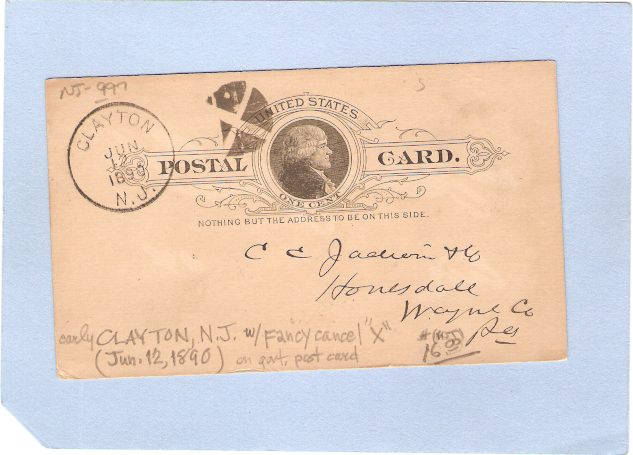 NJ-997
CLAYTON
JUN
12
1890
N.J.
UNITED STATES
POSTAL CARD.
ONE CENT
NOTHING BUT THE ADDRESS TO BE ON THIS SIDE.
C C Jadwin & Co
Honesdale
Wayne Co
Pa
early CLAYTON, N.J. w/ Fancy cancel "X"
(Jun. 12, 1890) on govt. post card
16